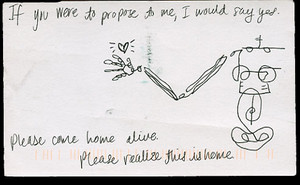 If you were to propose to me, I would say yes.
Please come home alive.
Please realize this is home